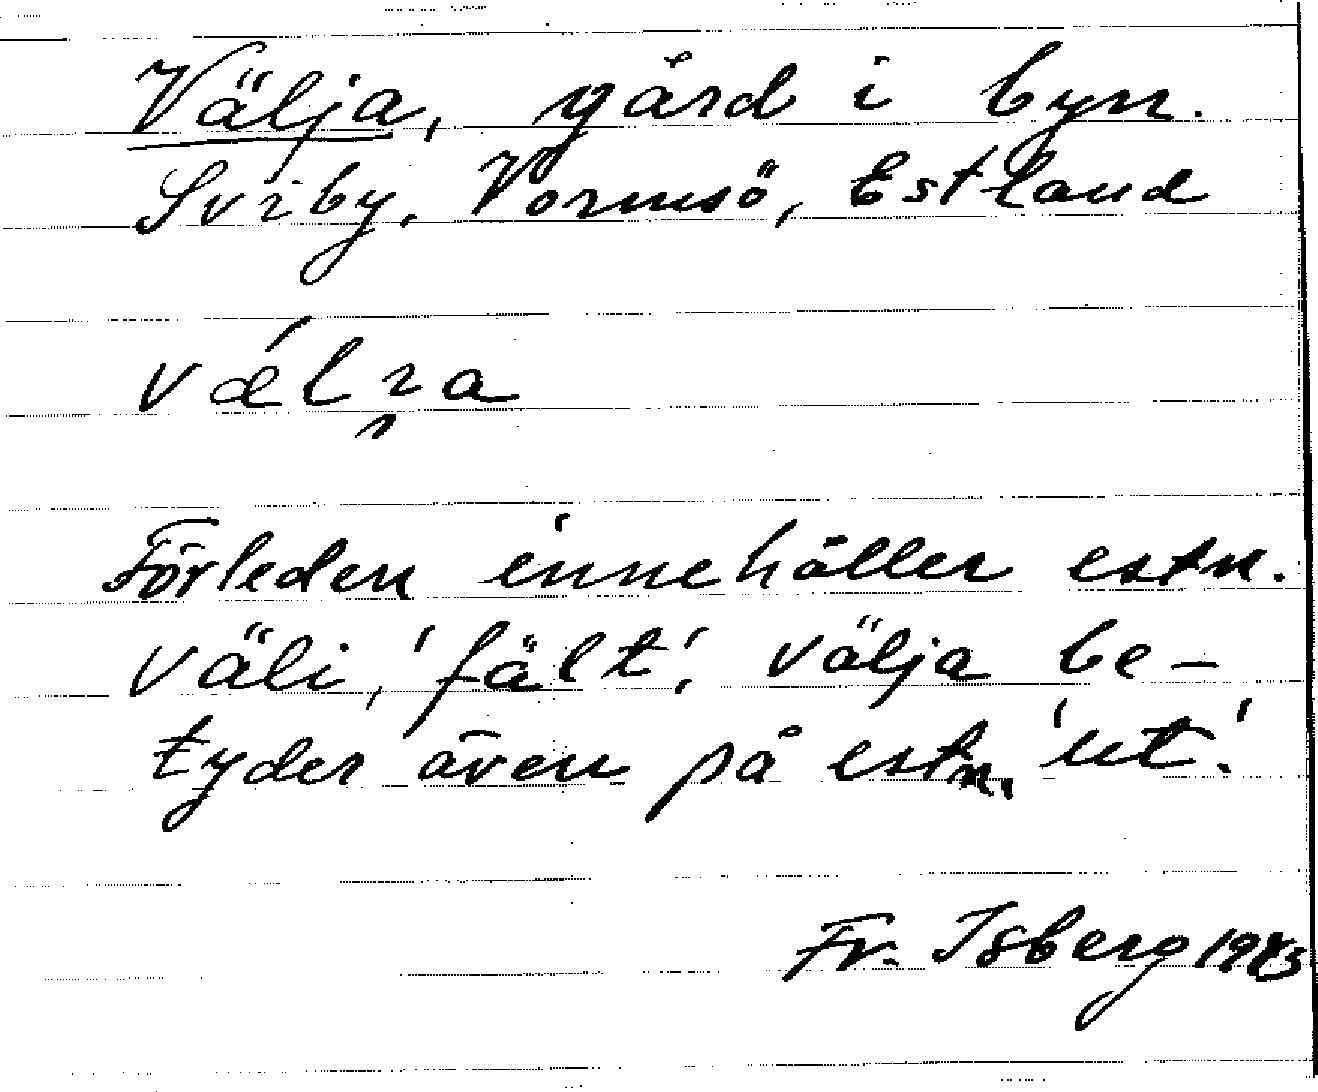 Välja, gård i byn.
Sviby, Vormsö, Estland
vǽlı̯a
Förleden innehåller estn.
väli, 'fält'. välja be-
tyder även på estn. 'ut'.
Fr. Isberg